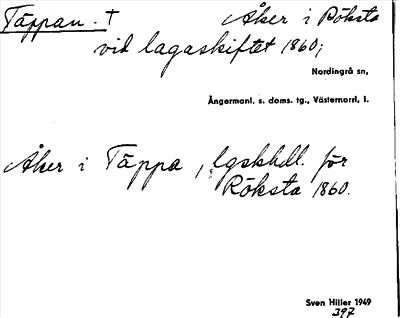 Täppan. † Åker i Röksta
vid lagaskiftet 1860;
Nordingrå sn,
Ångermanl. s. doms. tg., Västernorrl. l.
Åker i Täppa, lgskhdl. för
Röksta 1860.
Sven Hiller 1949
397